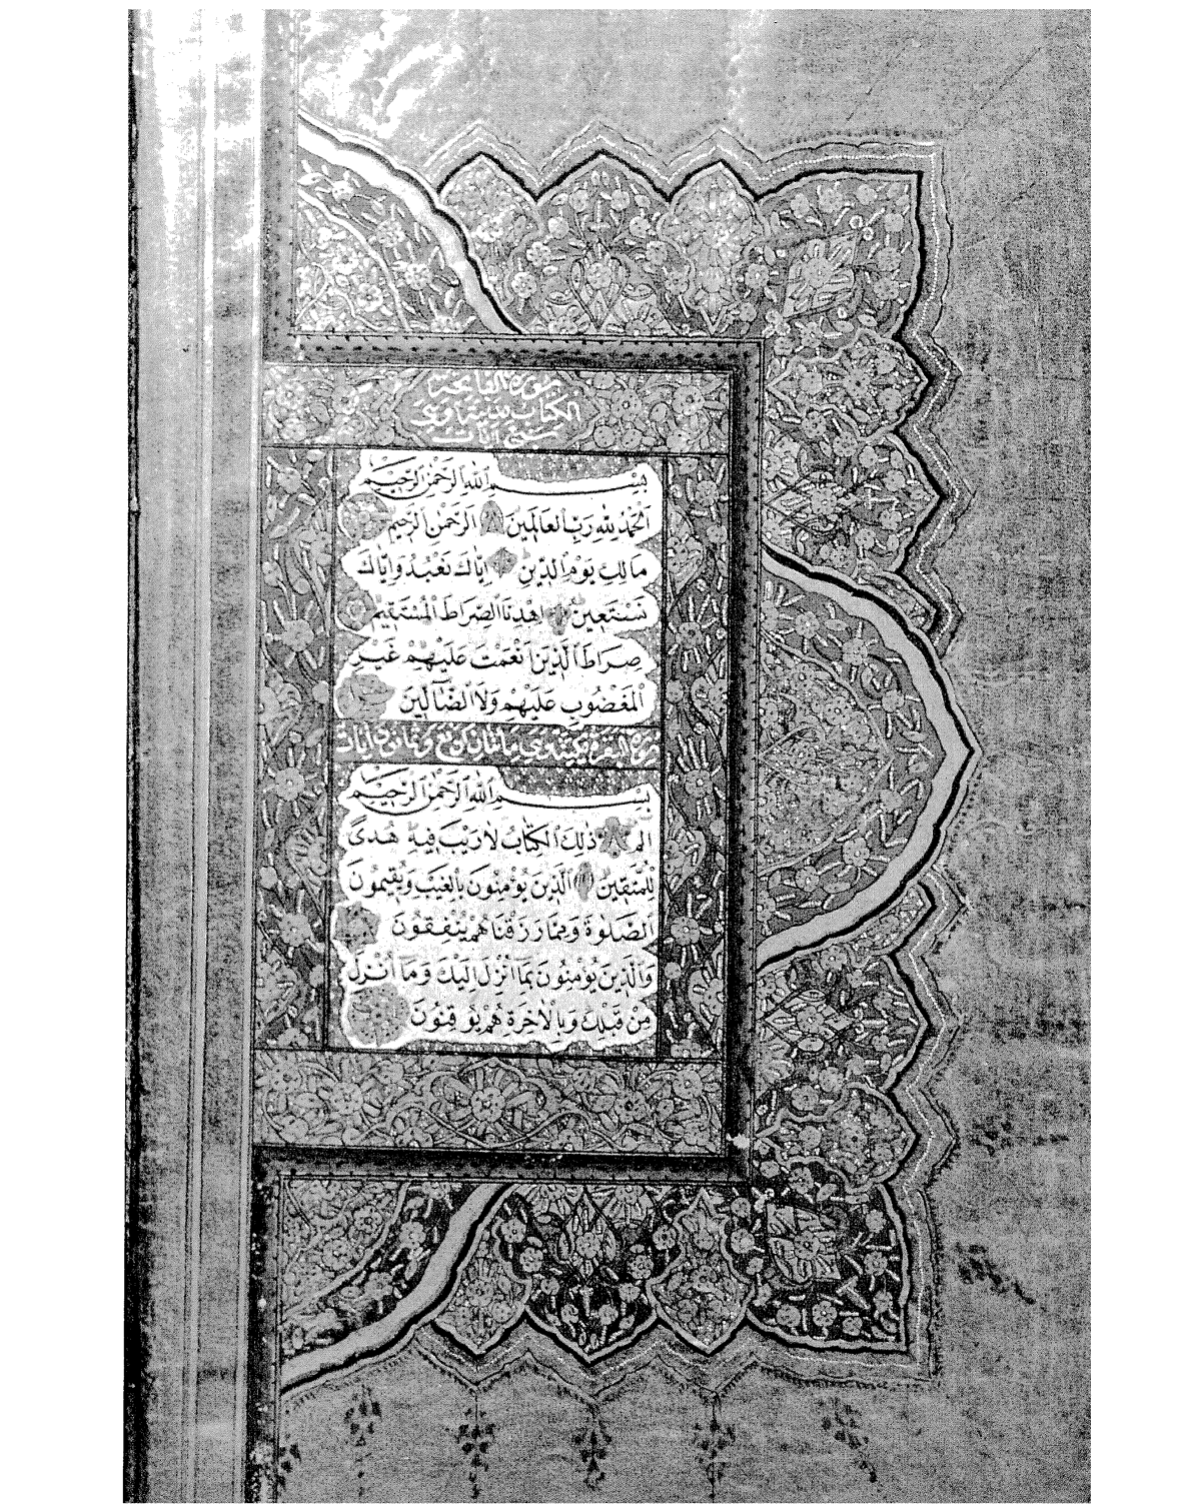 سورة الفاتحة
الكتاب
بِسْمِ اللهِ الرَّحْمٰنِ الرَّحِيمِ
اَلْحَمْدُ لِلّٰهِ رَبِّ الْعَالَمِينَ اَلرَّحْمٰنِ الرَّحِيمِ
مَالِكِ يَوْمِ الدِّينِ اِيَّاكَ نَعْبُدُ وَاِيَّاكَ
نَسْتَعِينُ اِهْدِنَا الصِّرَاطَ الْمُسْتَقِيمَ
صِرَاطَ الَّذِينَ اَنْعَمْتَ عَلَيْهِمْ غَيْرِ
الْمَغْضُوبِ عَلَيْهِمْ وَلَا الضَّالِّينَ
سورة البقرة
بِسْمِ اللهِ الرَّحْمٰنِ الرَّحِيمِ
الم ذٰلِكَ الْكِتَابُ لَا رَيْبَ فِيهِ هُدًى
لِلْمُتَّقِينَ الَّذِينَ يُؤْمِنُونَ بِالْغَيْبِ وَيُقِيمُونَ
الصَّلٰوةَ وَمِمَّا رَزَقْنَاهُمْ يُنْفِقُونَ
وَالَّذِينَ يُؤْمِنُونَ بِمَا اُنْزِلَ اِلَيْكَ وَمَا اُنْزِلَ
مِنْ قَبْلِكَ وَبِالْاٰخِرَةِ هُمْ يُوقِنُونَ